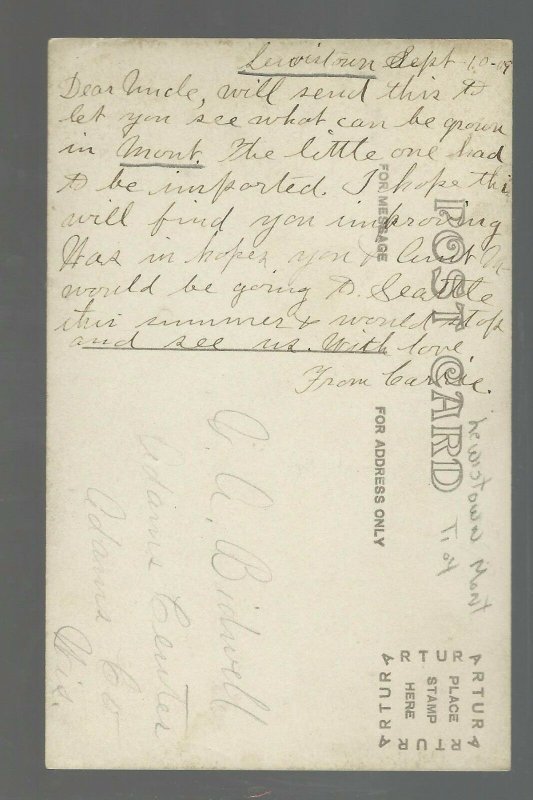 Lewistown Sept 10-09
Dear Uncle, will send this to
let you see what can be grown
in Mont. The little one had
to be imported. I hope this
will find you improving
Was in hopes you & Aunt M
would be going to Seattle
this summer & would stop
and see us. With love,
From Carrie.
POST CARD
FOR MESSAGE
FOR ADDRESS ONLY
G. A. Bidwell
Adams Center
Adams Co
Wis.
Lewistown Mont
ARTURA
PLACE
STAMP
HERE
ARTURA
ARTUR
ARTUR